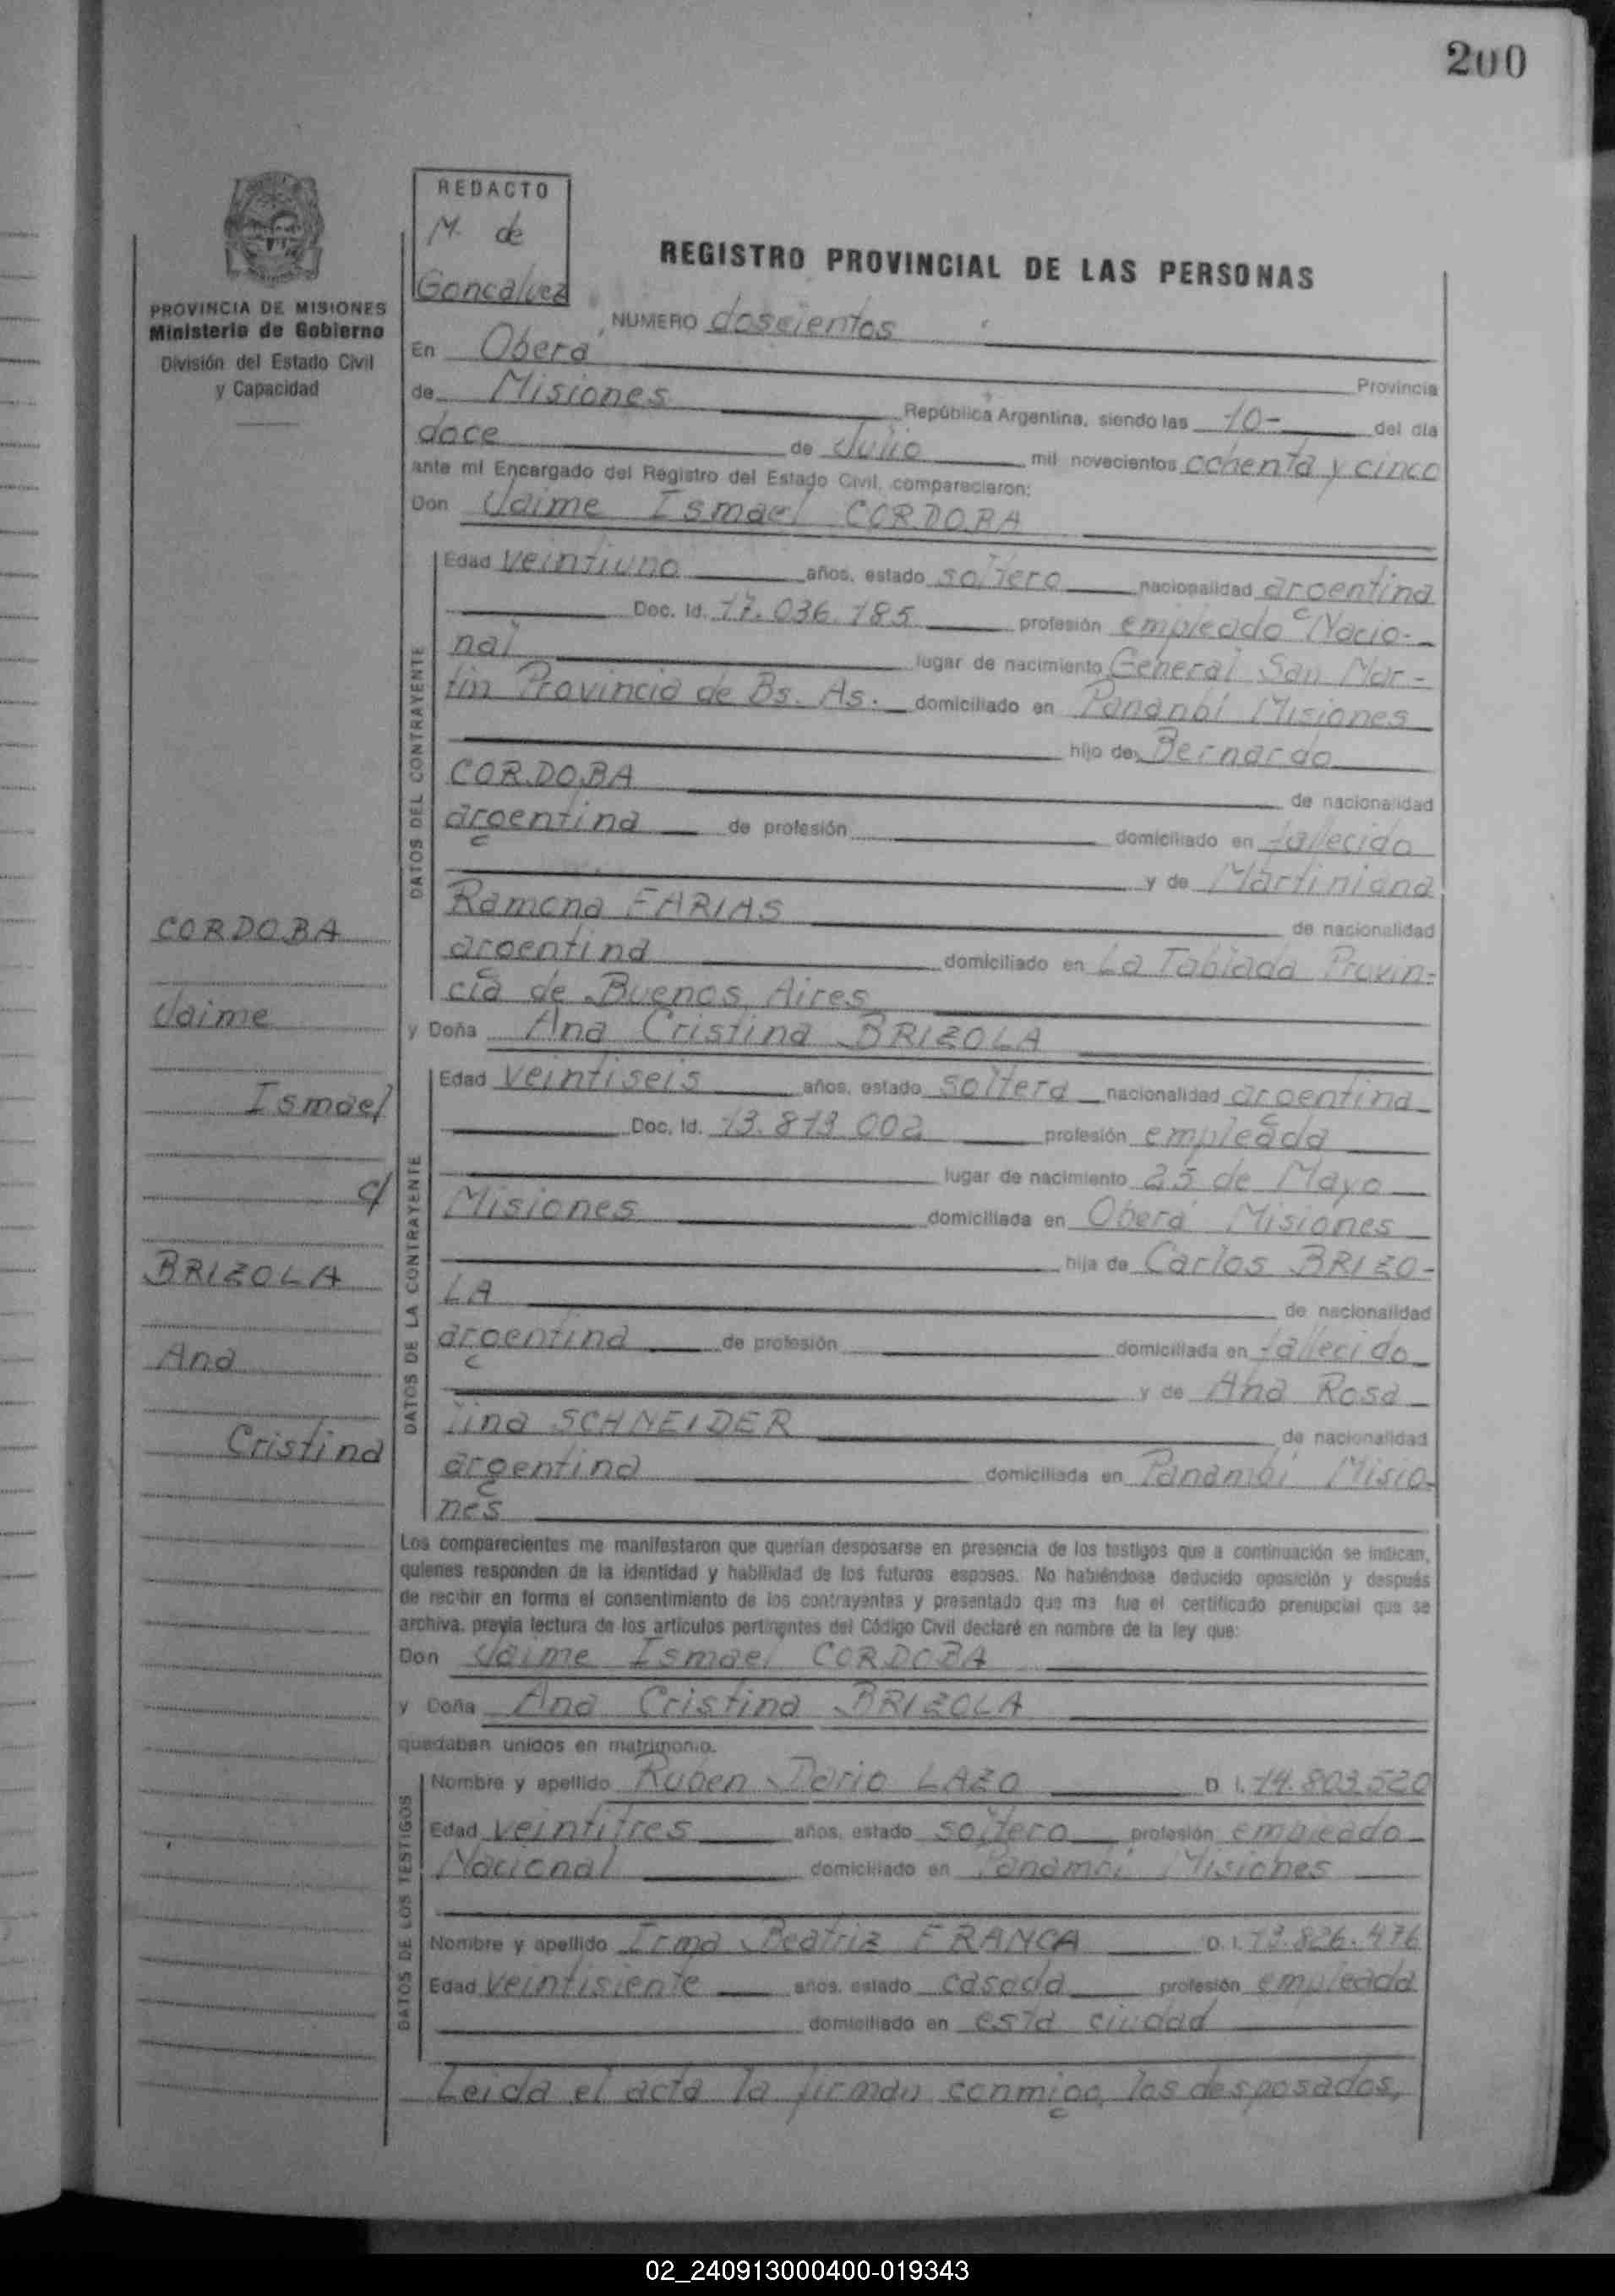 200
REDACTO
M. de
Goncalvez
REGISTRO PROVINCIAL DE LAS PERSONAS
PROVINCIA DE MISIONES
Ministerio de Gobierno
División del Estado Civil
y Capacidad
NUMERO doscientos
En Oberá Provincia
de Misiones República Argentina, siendo las 10- del día
doce de Julio mil novecientos ochenta y cinco
ante mí Encargado del Registro del Estado Civil, comparecieron:
Don Jaime Ismael CORDOBA
DATOS DEL CONTRAYENTE
Edad veintiuno años, estado soltero nacionalidad argentina
Doc. Id. 17.036.185 profesión empleado Nacio-
nal lugar de nacimiento General San Mar-
tín Provincia de Bs. As. domiciliado en Panambí Misiones
hijo de Bernardo
CORDOBA de nacionalidad
argentina de profesión domiciliado en fallecido
y de Martiniana
Ramona FARIAS de nacionalidad
argentina domiciliado en La Tablada Provin-
cia de Buenos Aires
y Doña Ana Cristina BRIZOLA
DATOS DE LA CONTRAYENTE
Edad veintiseis años, estado soltera nacionalidad argentina
Doc. Id. 13.873.002 profesión empleada
lugar de nacimiento 25 de Mayo
Misiones domiciliada en Oberá Misiones
hija de Carlos BRIZO-
LA de nacionalidad
argentina de profesión domiciliada en fallecido
y de Ana Rosa
lina SCHNEIDER de nacionalidad
argentina domiciliada en Panambí Misio-
nes
CORDOBA
Jaime
Ismael
c/
BRIZOLA
Ana
Cristina
Los comparecientes me manifestaron que querían desposarse en presencia de los testigos que a continuación se indican,
quienes responden de la identidad y habilidad de los futuros esposos. No habiéndose deducido oposición y después
de recibir en forma el consentimiento de los contrayentes y presentado que me fue el certificado prenupcial que se
archiva, previa lectura de los artículos pertinentes del Código Civil declaré en nombre de la ley que:
Don Jaime Ismael CORDOBA
y Doña Ana Cristina BRIZOLA
quedaban unidos en matrimonio.
DATOS DE LOS TESTIGOS
Nombre y apellido Ruben Dario LAZO D. I. 14.803.520
Edad veintitres años, estado soltero profesión empleado
Nacional domiciliado en Panambí Misiones
Nombre y apellido Irma Beatriz FRANCA D. I. 13.826.476
Edad veintisiente años, estado casada profesión empleada
domiciliado en esta ciudad
Leída el acta la firman conmigo, los desposados,
02_240913000400-019343